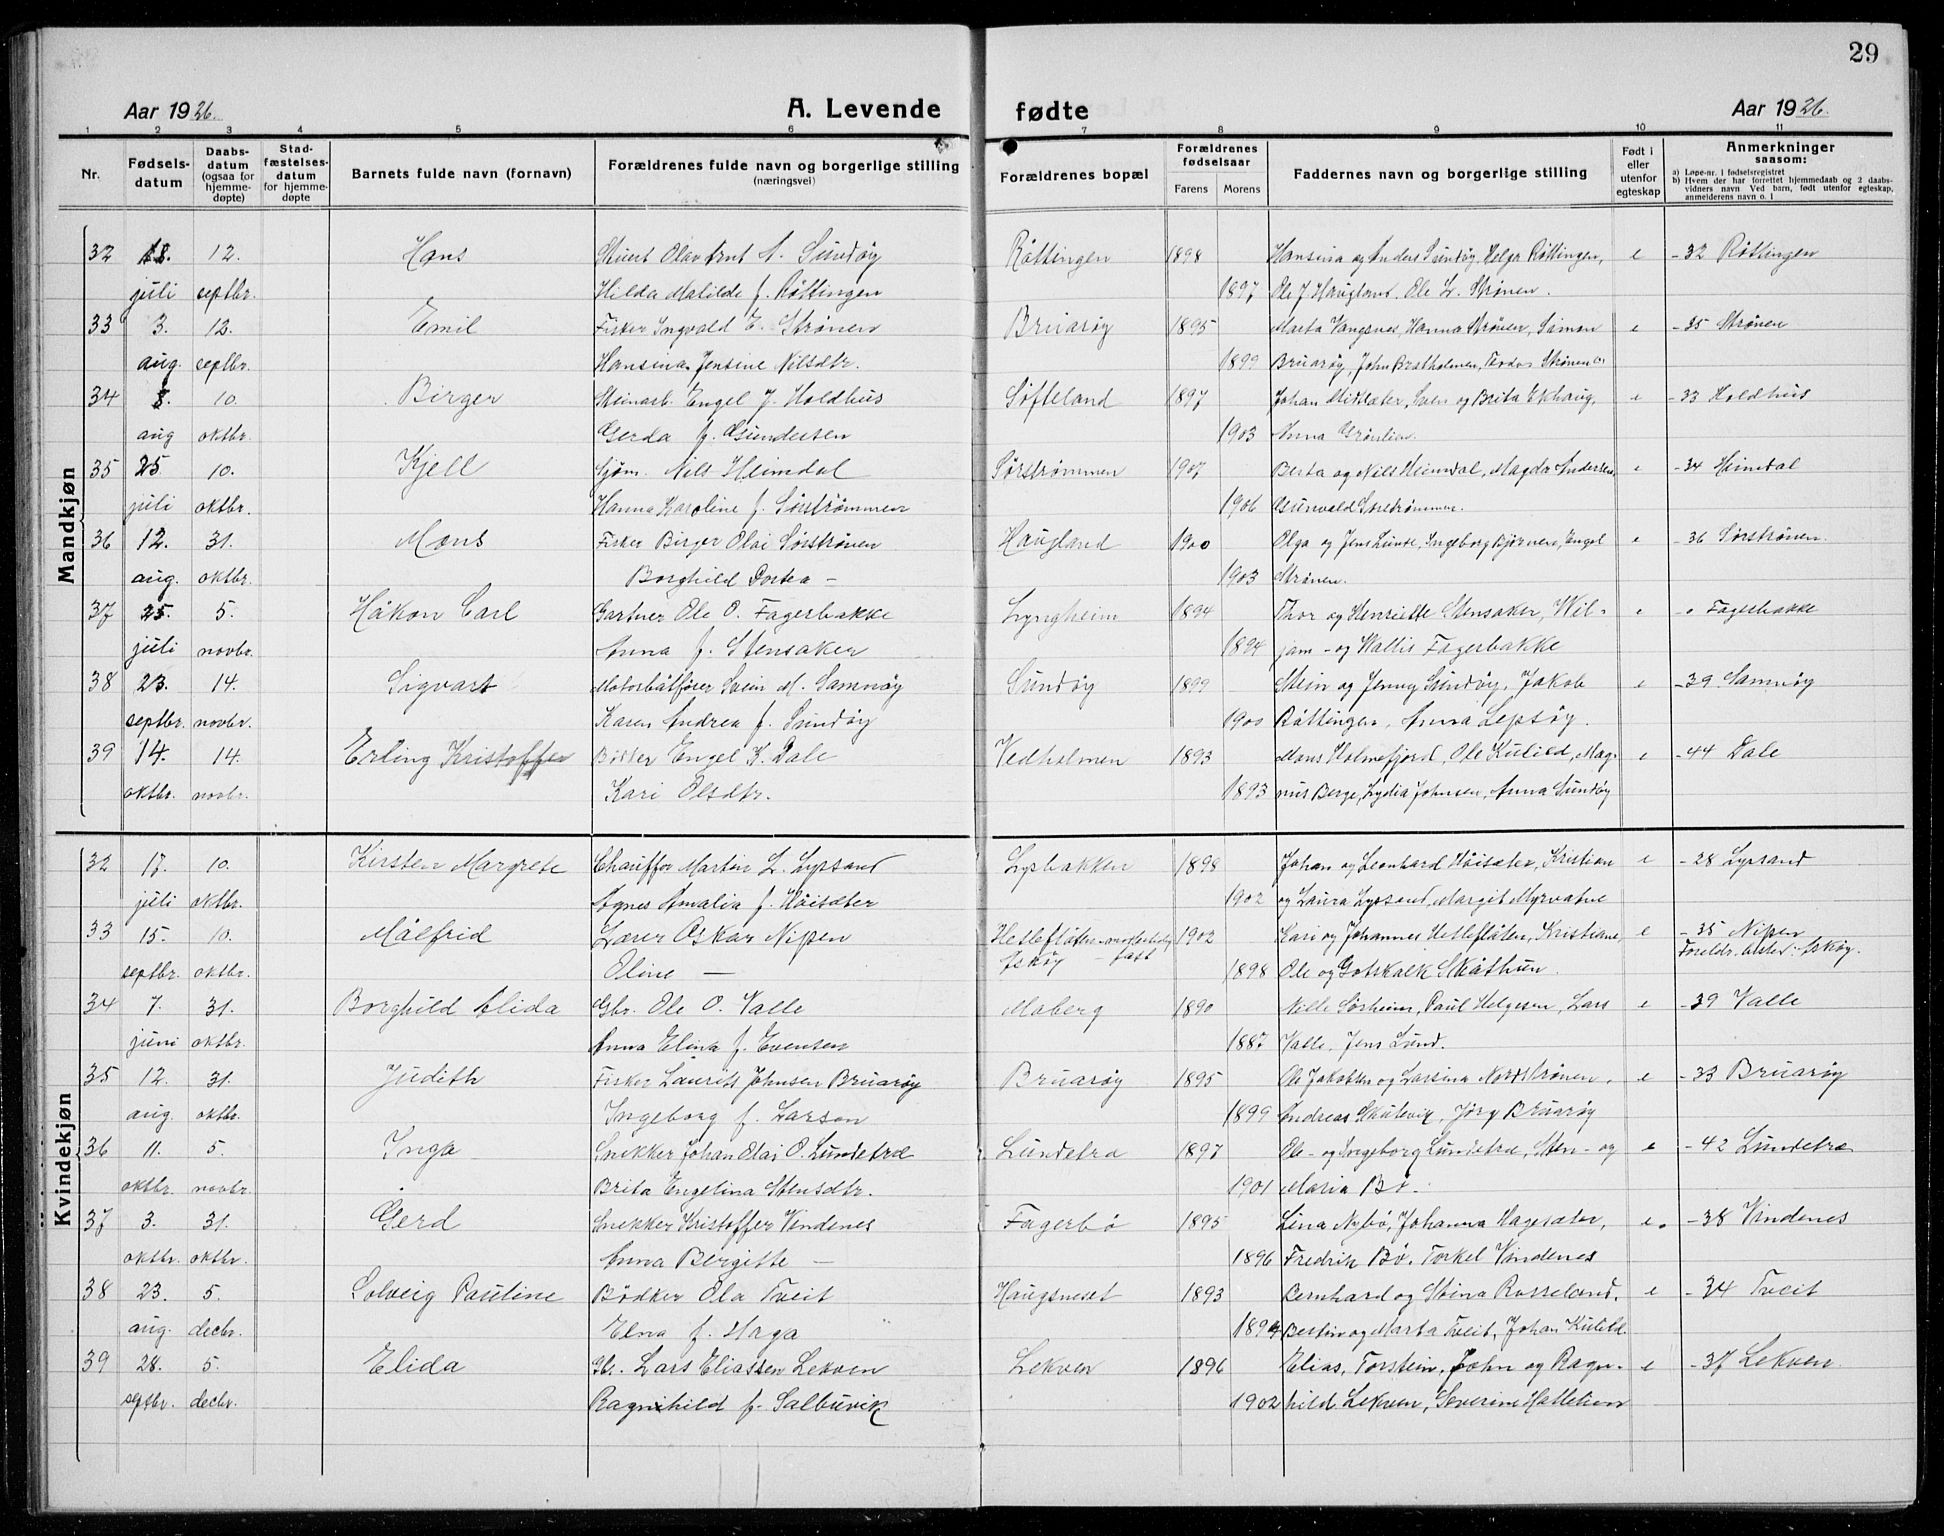 29
Aar 1926. A. Levende fødte Aar 1926.
1 2 3 4 5 6 7 8 9 10 11
Nr. Fødselsdatum Daabsdatum (ogsaa for hjemmedøpte) Stadfæstelsesdatum for hjemmedøpte Barnets fulde navn (fornavn) Forældrenes fulde navn og borgerlige stilling (næringsvei) Forældrenes bopæl Forældrenes fødselsaar Farens Morens Faddernes navn og borgerlige stilling Født i eller utenfor egteskap Anmerkninger saasom:
a) Løpe-nr. i fødselsregistret
b) Hvem der har forrettet hjemmedaab og 2 daabsvidners navn Ved barn, født utenfor egteskap, anmelderens navn o. l
Mandkjøn
32 18. 12. Hans Stuert Olav Arnt A. Sundöy Röttingen 1898 Hansina og Anders Sundöy, Helge Röttingen, e -32 Röttingen
juli septbr. Hilda Matilde f. Röttingen 1897 Ole J. Haugland, Ole L. Strönen.
33 3. 12. Emil Fisker Ingvald E. Strönen Bruaröy 1895 Marta Vangsnes, Hanna Strönen, Simon e -35 Strönen
aug. septbr. Hansina Jensine Nilsdtr. 1899 Bruaröy, John Bratholmen, Strönen
34 8. 10. Birger Steinarb. Engel J. Holdhus Söfteland 1897 Johan Midtsæter, Sven og Brita Ekhaug, e -33 Holdhus
aug oktbr. Gerda f. Gundersen 1903 Anna Grönlien.
35 25 10. Kjell Sjöm. Nils Heimdal Sörströmmen 1907 Berta og Nils Heimdal, Magda Andersen, e -34 Heimdal
juli oktbr. Hanna Karoline f. Sörströmmen 1906 Gunvald Sörströmmen.
36 12. 31. Mons Fisker Birger Olai Sörströnen Haugland 1900 Olga og Jens Lunde, Ingeborg Björnen, Engel e -36 Sörströnen.
aug. oktbr. Borghild Dortea — 1903 Strönen.
37 25. 5. Håkon Carl Gartner Ole O. Fagerbakke Lyngheim 1894 Thor og Henriette Stensaker, Wil- e Fagerbakke
juli novbr. Anna f. Stensaker 1894 jam - og Wallis Fagerbakke
38 23. 14. Sigvart Motorbåtförer Svein M. Samnöy Sundöy 1899 Stein og Jenny Sundöy, Jakob e -39 Samnöy
septbr. novbr. Karen Andrea f. Sundöy 1900 Röttingen, Anna Lepsöy.
39 14. 14. Erling Kristoffer Bödker Engel K. Dale Vedholmen 1893 Mons Holmefjord, Ole Kulild, Mag- e -44 Dale
oktbr. novbr. Kari Olsdtr. 1893 nus Berge, Lydia Johnsen, Anna Sundöy
Kvindekjøn
32 17. 10. Kirsten Margrete Chauffør Martin L. Lysand Lysbakken 1898 Johan og Leonhard Höisæter, Kristian e -28 Lysand
juli oktbr. Agnes Amalia f. Höisæter 1902 og Laura Lyssand, Margit Myrvatne
33 15. 10. Målfrid Lærer Oskar Nipen Hetleflåten 1902 Kari og Johannes Hetleflåten, Kristiane, e -35 Nipen
septbr. oktbr. Oline — Askøy fast 1898 Ole og Gotskalk Skåthun. Askøy.
34 7. 31. Borghild Alida Gbr. Ole O. Valle Moberg 1890 Nille Sörheim, Paul Helgesen, Lars e -39 Valle
juni oktbr. Anna Elina f. Evensen 1887 Valle, Jens Lund.
35 12. 31. Judith Fisker Laurits Johnsen Bruaröy Bruaröy 1895 Ole Jakobsen og Lassina Nordströnen, e -33 Bruaröy
aug. oktbr. Ingeborg f. Larsen 1899 Andreas Skulevik, Jörg Bruaröy
36 11. 5. Inga Snekker Johan Olai O. Lundetræ Lundetræ 1897 Ole - og Ingeborg Lundetræ, Sten - og e -42 Lundetræ
oktbr. novbr. Brita Engelina Stensdtr. 1901 Maria Bö.
37 3. 31. Gerd Snekker Kristoffer Vindenes Fagerbö 1895 Lina Nybö, Johanna Hagesæter, e. -38 Vindenes
oktbr. oktbr. Anna Bergitte — 1896 Fredrik Bö, Torkel Vindenes
38 23. 5. Solveig Pauline Bödker Ola Tveit Haugsneset 1893 Bernhard og Stina Rosseland, e -34 Tveit
aug. decbr. Elna f. Haga 1894 Bertin og Marta Tveit, Johan Kulild.
39 28. 5. Elida Gbr. Lars Eliassen Lekven Lekven 1896 Elias, Torstein, John og Ragn- e -37 Lekven.
septbr. decbr. Ragnhild f. Salbuvik 1902 hild Lekven, Severine Hatletun